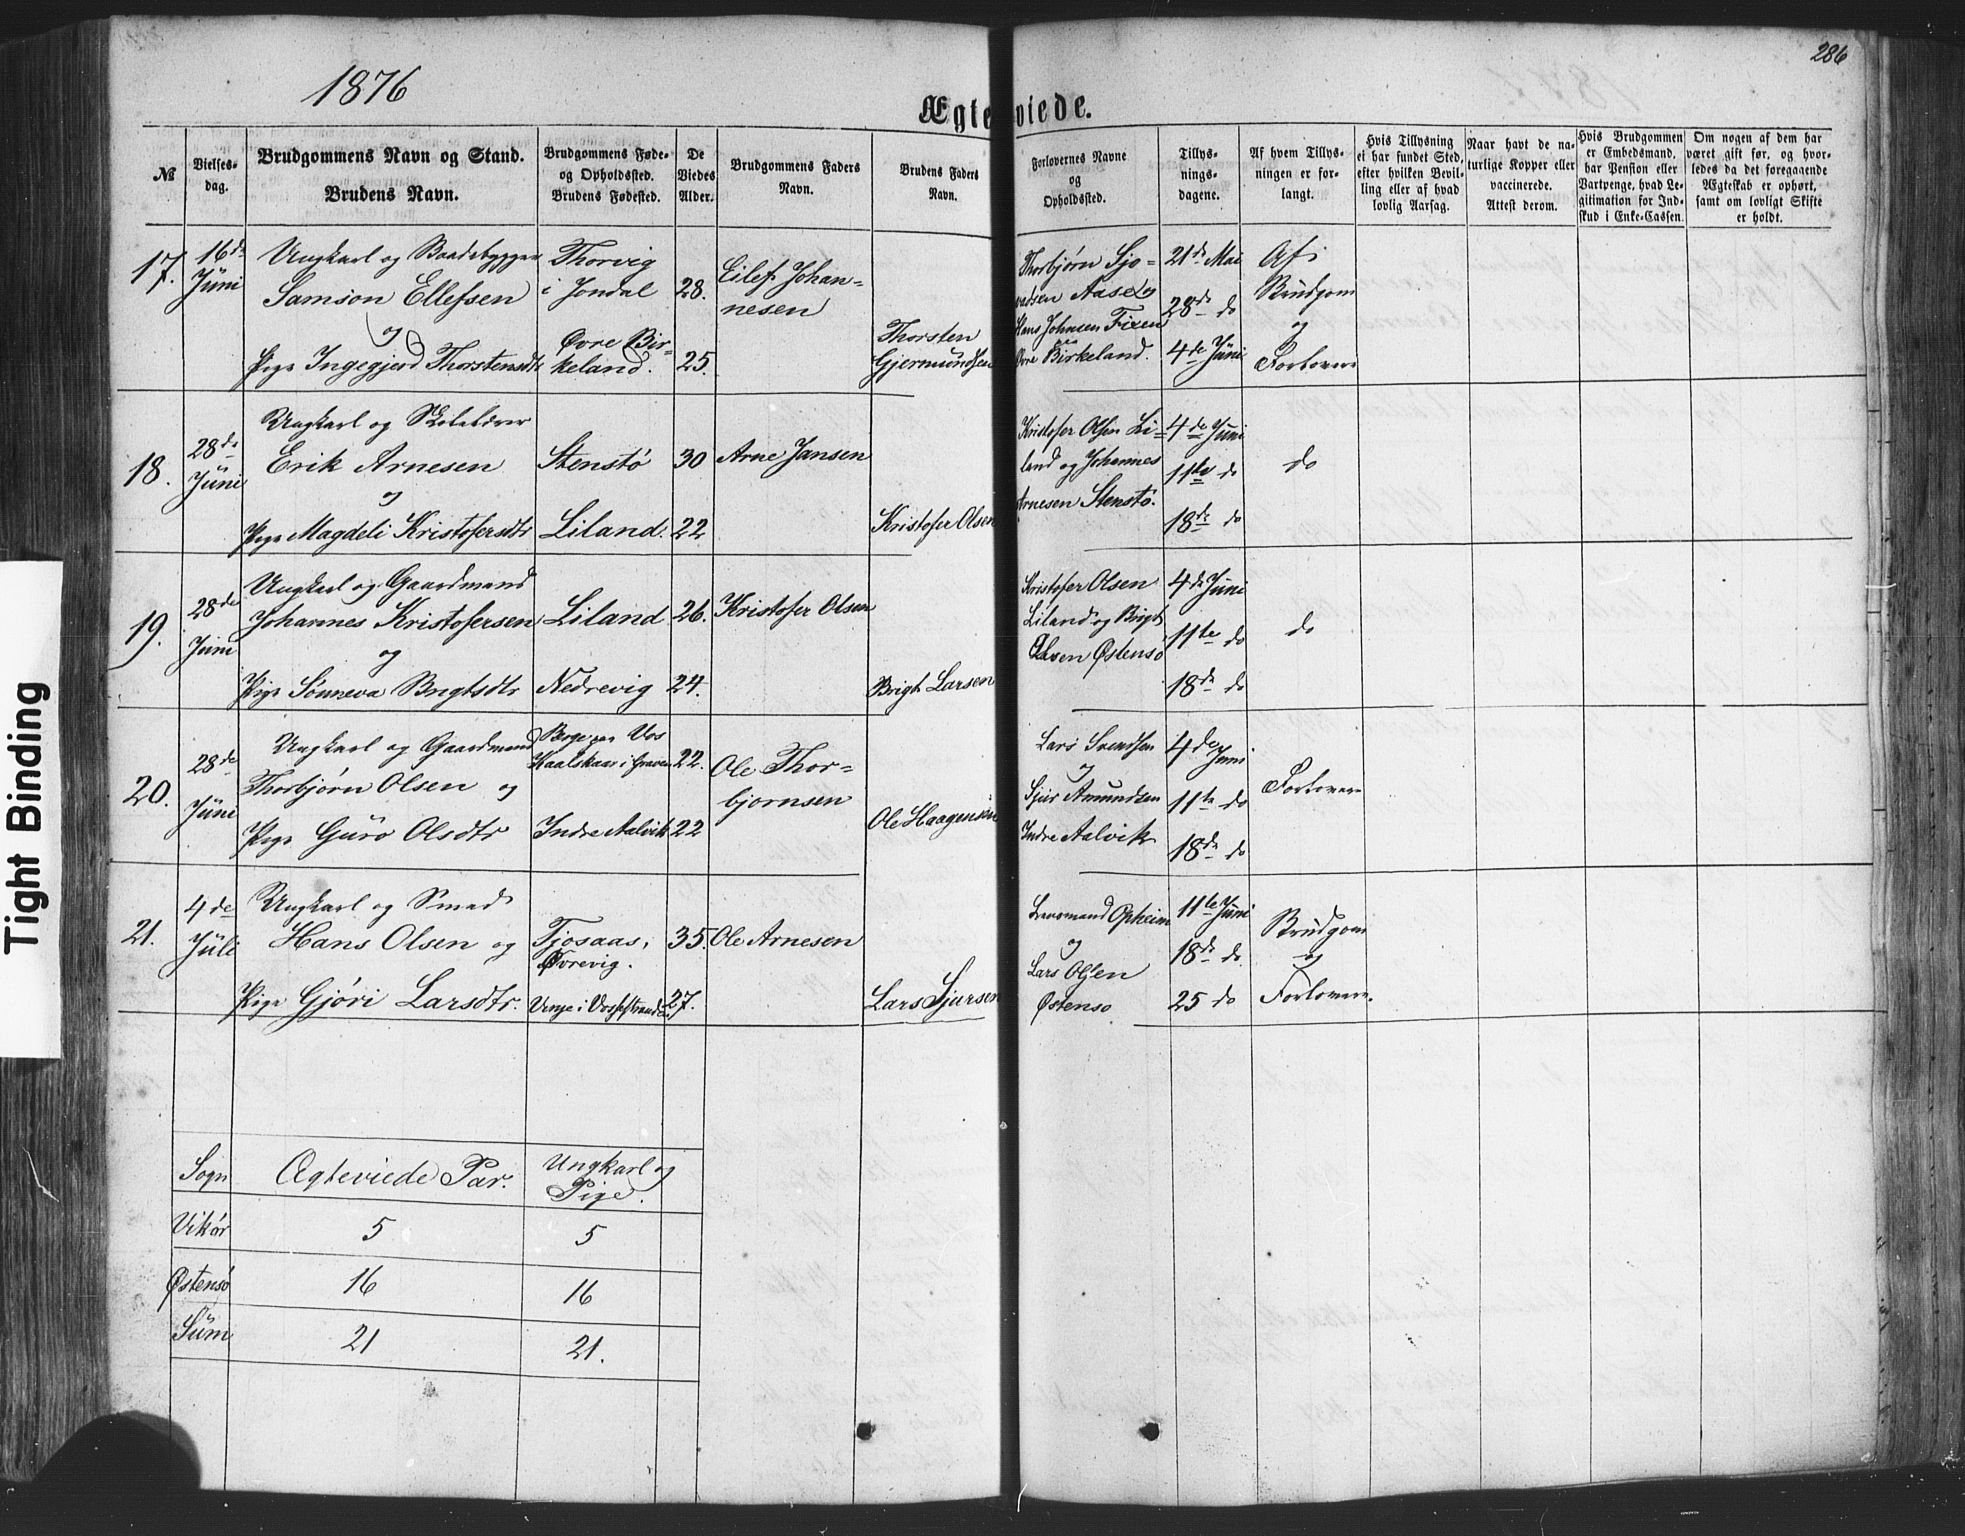 286
1876
Ægteviede.
№
Vielses-
dag.
Brudgommens Navn og Stand.
Brudens Navn.
Brudgommens Føde-
og Opholdsted.
Brudens Fødested.
De
Viedes
Alder.
Brudgommens Faders
Navn.
Brudens Faders
Navn.
Forlovernes Navne
og
Opholdsted.
Tillys-
nings-
dagene.
Af hvem Tillys-
ningen er for-
langt.
Hvis Tillysning
ei har fundet Sted,
efter hvilken Bevil-
ling eller af hvad
lovlig Aarsag.
Naar havt de na-
turlige Kopper eller
vaccinerede.
Attest derom.
Hvis Brudgommen
er Embedsmand,
har Pension eller
Vartpenge, hvad Le-
gitimation for Ind-
skud i Enke-Cassen.
Om nogen af dem har
været gift før, og hvor-
ledes da det foregaaende
Ægteskab er ophørt,
samt om lovligt Skifte
er holdt.
17.
16de
Juni
Ungkarl og Baadebygger
Samson Ellefsen
og
Pige Ingegjerd Thorstensdtr
Thorvig
i Jondal
Øvre Bir-
keland.
28.
25.
Eilef Johan-
nesen
Thorsten
Gjermundsen
Thorbjørn Sjo-
vadsen Aase og
Hans Johnsen Fixen
Øvre Birkeland.
21de Mai
28de do
4de Juni
Af
Brudgom
og
Forlovere
18.
28de
Juni
Ungkarl og
Erik Arnesen
og
Pige Magdeli Kristofersdtr
Stenstø
Liland.
30
22
Arne Jansen
Kristofer Olsen
Kristofer Olsen Li-
land og Johannes
Arnesen Stenstø.
4de Juni
11te do
18de do
do
19.
28de
Juni
Ungkarl og Gaardmand
Johannes Kristofersen
og
Pige Sønneva Brigtsdtr
Liland
Nedrevig
26.
24.
Kristofer Olsen
Brigt Larsen
Kristofer Olsen
Liland og Brigt
Olsen Østensø
4de Juni
11te do
18de do
do
20.
28de
Juni
Ungkarl og Gaardmand
Thorbjørn Olsen og
Pige Guro Olsdtr
Berge paa Vos
Kaalskaar i Graven
Indre Aalvik
22.
22
Ole Thor-
bjornsen
Ole Haagensen
Lars Svendsen
og
Sjur Amundsen
Indre Aalvik
4de Juni
11te do
18de do
Forlovere
21.
4de
Juli
Ungkarl og Smed
Hans Olsen og
Pige Gjøri Larsdtr.
Tjosaas,
Øvrevig.
Urnje i Vossestranden
35.
27.
Ole Arnesen
Lars Sjursen
Opheim
og
Lars Olsen
Østenso
11te Juni
18de do
25 do
Brudgom
og
Forlovere.
Sogn
Ægteviede Par.
Ungkarl og
Pige.
Vikør
5
5
Østensø
16
16
Sum
21
21.
Tight Binding